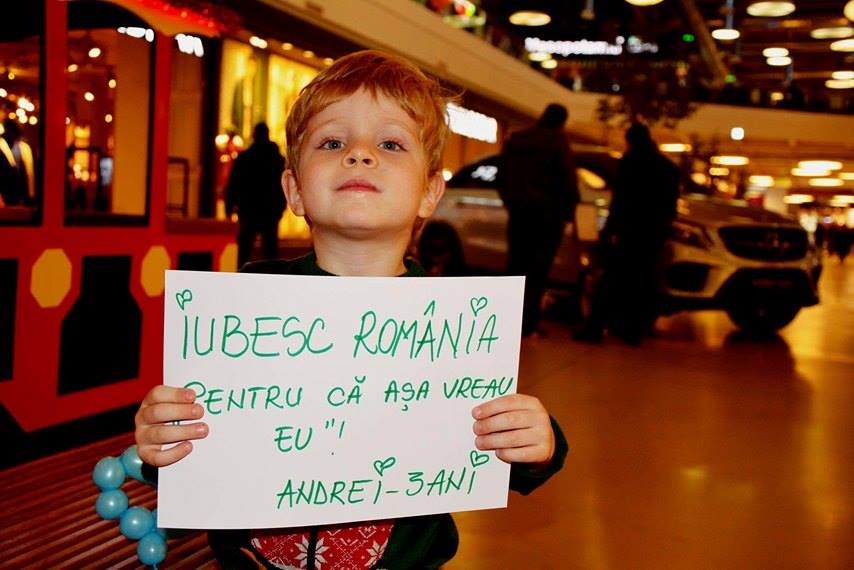 IUBESC ROMÂNIA
PENTRU CĂ AȘA VREAU
EU"!
ANDREI-3ANI